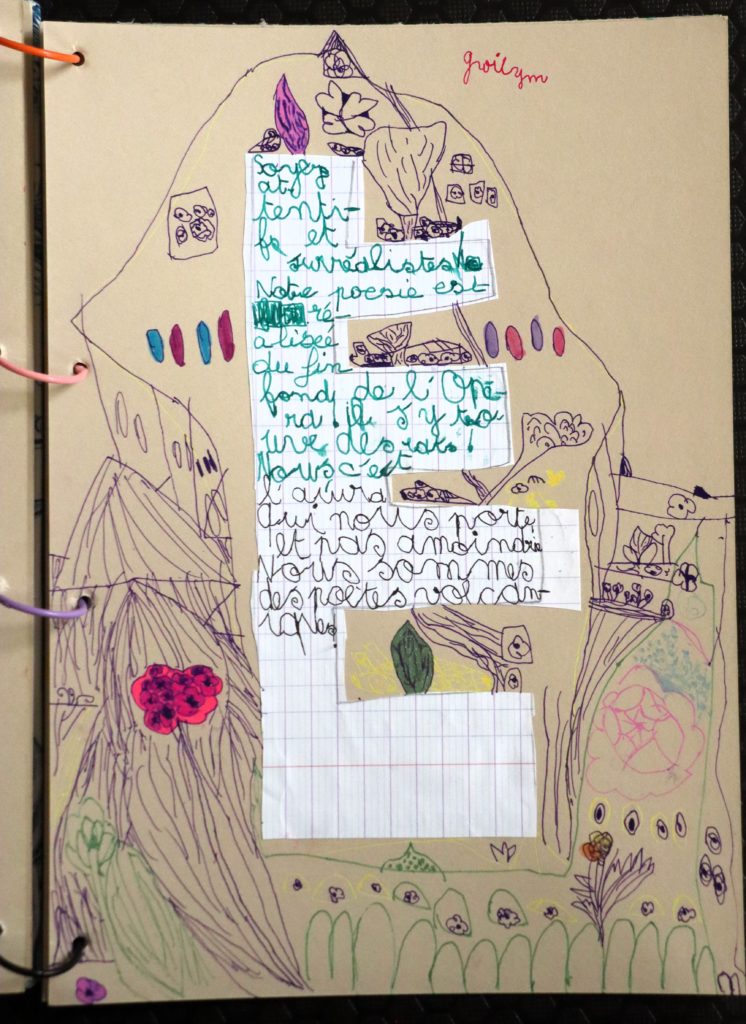 gwilym
Soyez
at-
tenti-
fs et
surréalistes
Notre poesie est
ré-
alisée
du fin
fond de l'Opé-
ra il s'y tro
uve des rats!
Nous c'est
Qui nous porte
et pas amoindrie
Nous sommes
des poètes volcan-
iques